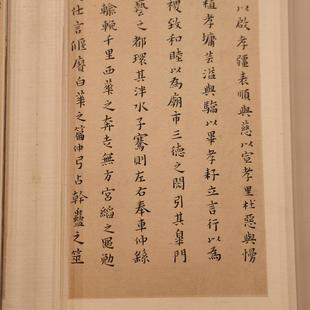 以啟孝疆表順與慈以宣孝里杜惡與慢
植孝墉芸滋與驅以畢孝耔立言行以為
稷致和睦以為廟市三德之閎引其皐門
藝之都環其泮水子騫則左右奉車仲繇
輸輓千里西華之奔走無方宮縚之黽勉
仕言偃膺白華之篇仲弓占幹蠱之筮